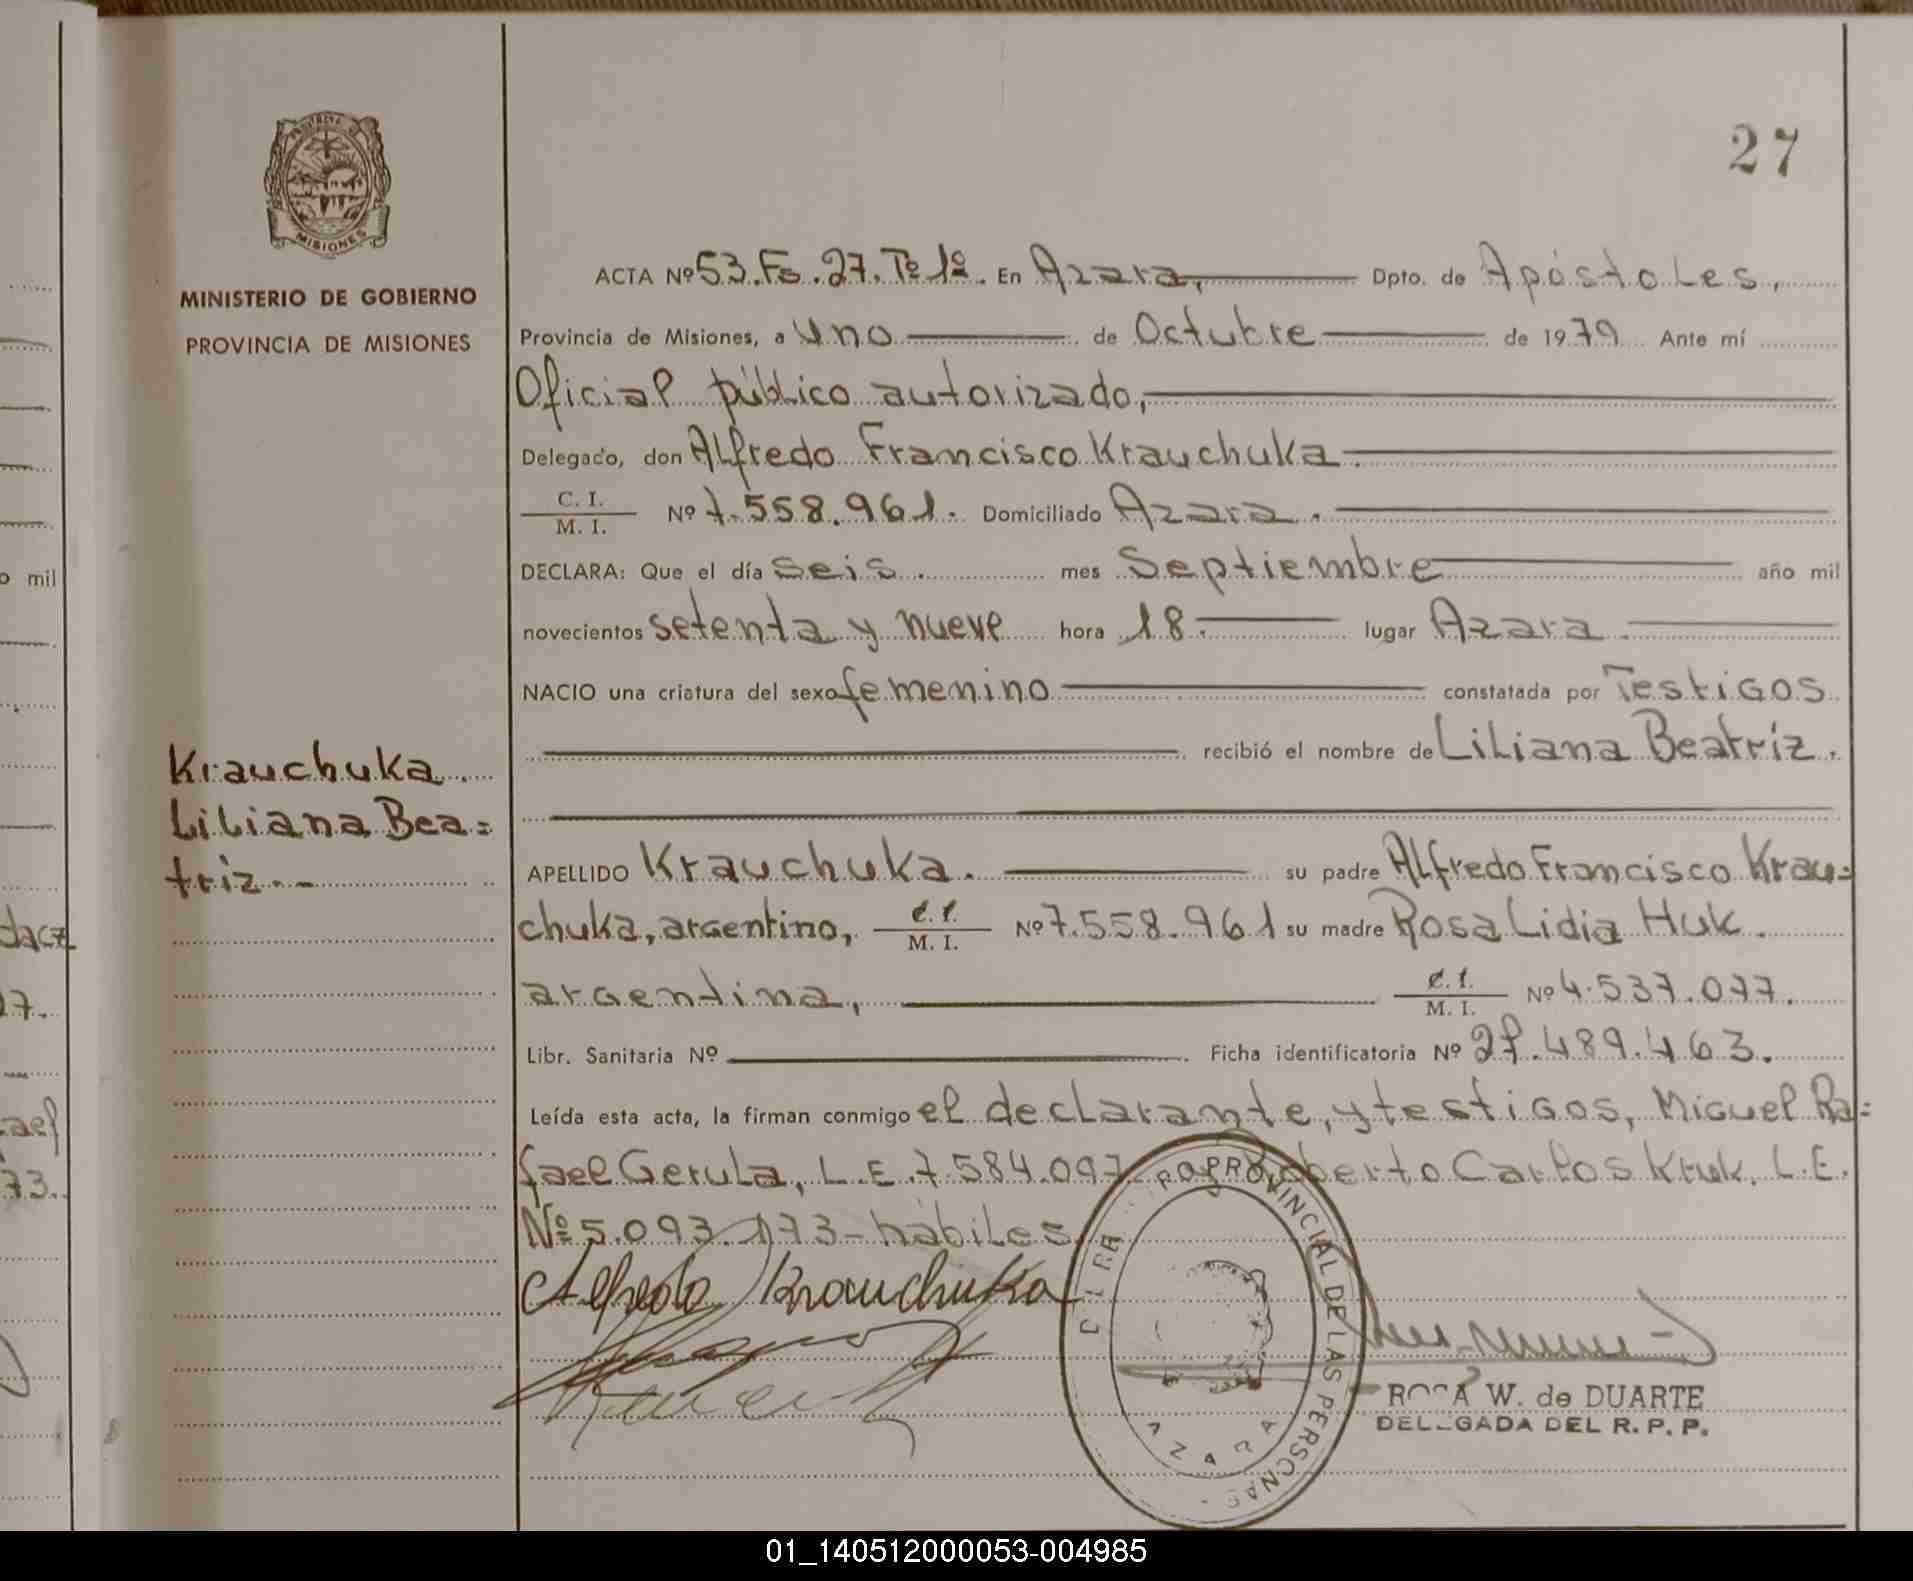 27
PROVINCIA DE
MISIONES
MINISTERIO DE GOBIERNO
PROVINCIA DE MISIONES
ACTA Nº 53. Fo. 27. Tº 1º. En Azara, Dpto. de Apóstoles,
Provincia de Misiones, a Uno de Octubre de 1979 Ante mí
Oficial público autorizado,
Delegado, don Alfredo Francisco Krauchuka.
C. I.
M. I.
Nº 7.558.961. Domiciliado Azara.
DECLARA: Que el día seis mes Septiembre año mil
novecientos setenta y nueve hora 18. lugar Azara.
NACIO una criatura del sexo femenino constatada por Testigos
recibió el nombre de Liliana Beatríz.
Krauchuka
Liliana Bea=
triz.-
APELLIDO Krauchuka. su padre Alfredo Francisco Krau=
chuka, argentino, C. I. / M. I. Nº 7.558.961 su madre Rosa Lidia Huk.
argentina, C. I. / M. I. Nº 4.537.077.
Libr. Sanitaria Nº Ficha identificatoria Nº 27.489.463.
Leída esta acta, la firman conmigo el declarante, y testigos, Miguel Ra=
fael Gerula, L.E. 7.584.097 y Roberto Carlos Kruk. L.E.
Nº 5.093.173- hábiles.
Alfredo Krauchuka
PROVINCIAL DE LAS PERSONAS
AZARA
ROSA W. de DUARTE
DELEGADA DEL R. P. P.
o mil
dacz
27.
fael
73.
01_140512000053-004985